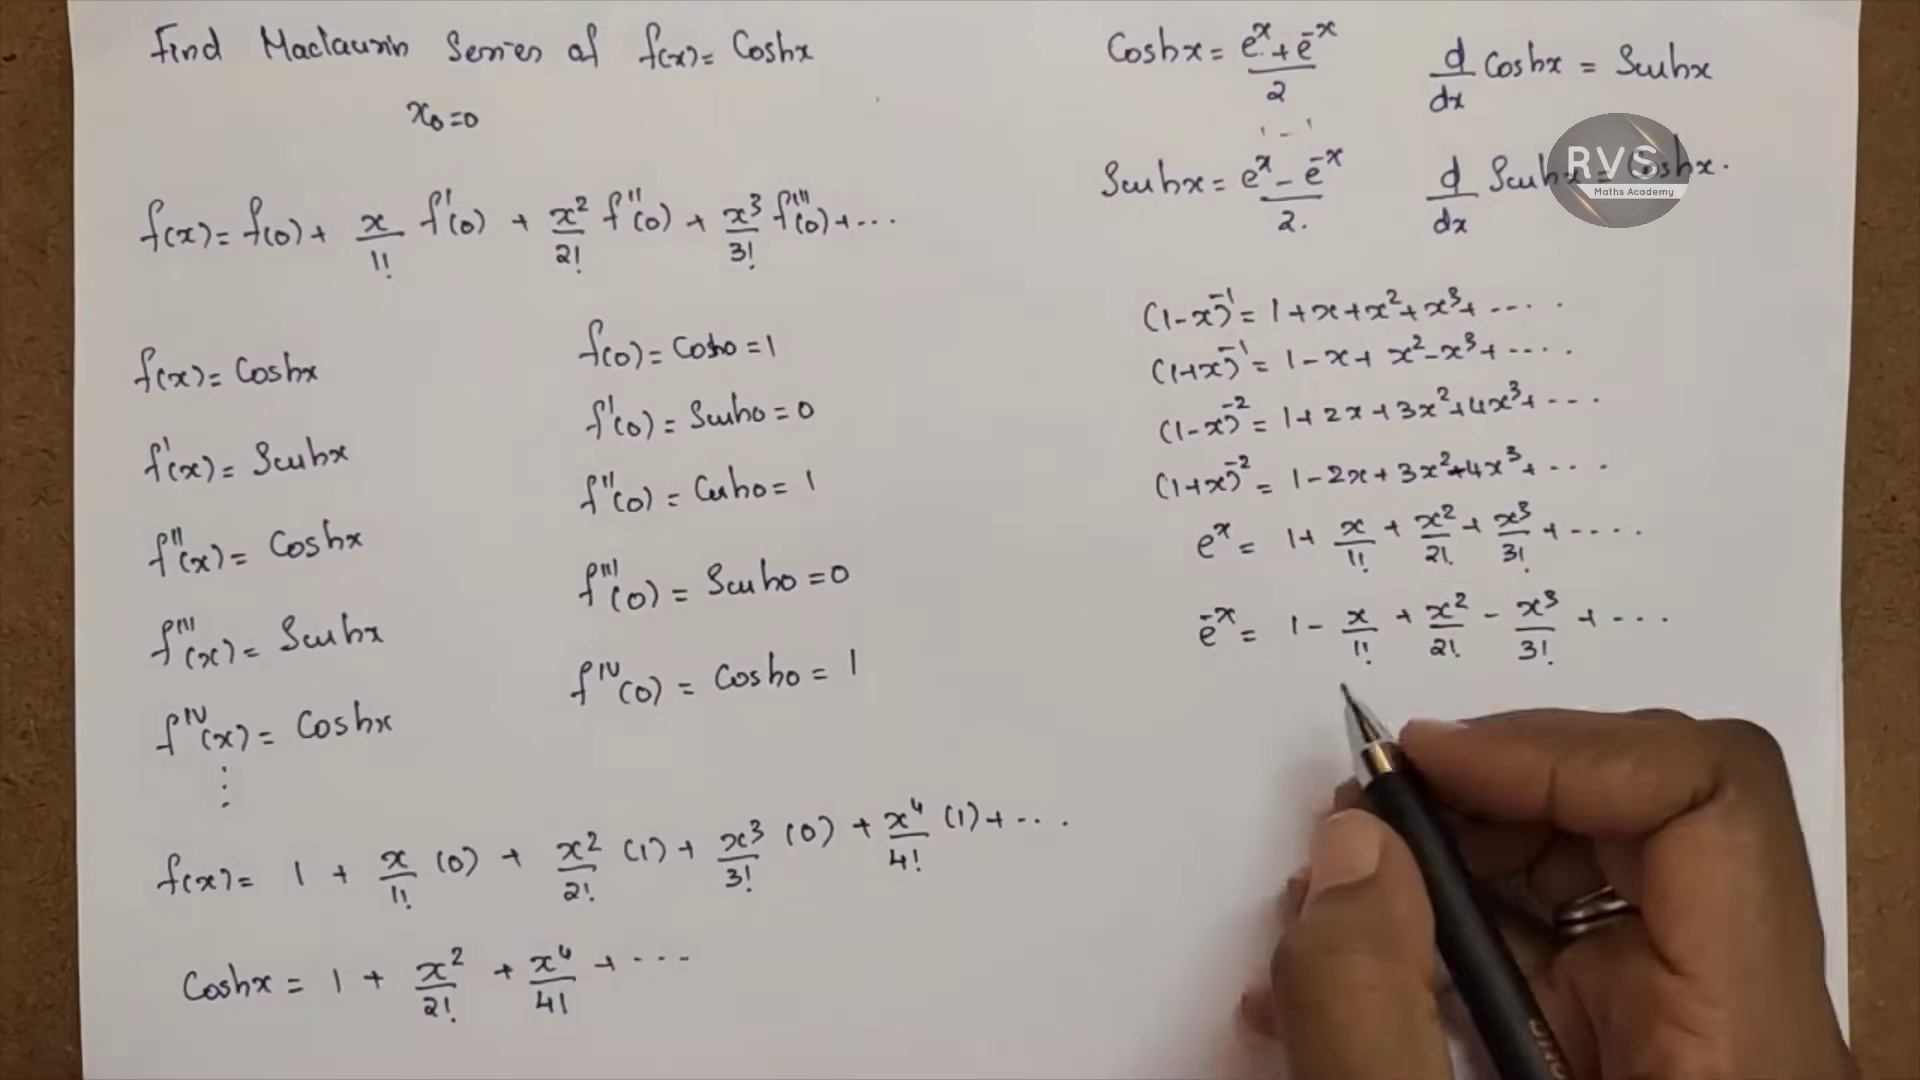 Find Maclaurin Series of f(x) = Coshx
x₀=0
f(x) = f(0) + x/1! f'(0) + x²/2! f''(0) + x³/3! f'''(0) + ...
f(x) = Coshx
f'(x) = Sinhx
f''(x) = Coshx
f'''(x) = Sinhx
f^IV(x) = Coshx
⋮
f(0) = Cosh0 = 1
f'(0) = Sinh0 = 0
f''(0) = Cosh0 = 1
f'''(0) = Sinh0 = 0
f^IV(0) = Cosh0 = 1
f(x) = 1 + x/1! (0) + x²/2! (1) + x³/3! (0) + x⁴/4! (1) + ...
Coshx = 1 + x²/2! + x⁴/4! + ...
Coshx = (e^x + e^-x)/2
d/dx Coshx = Sinhx
Sinhx = (e^x - e^-x)/2.
d/dx Sinhx = Coshx.
RVS
Maths Academy
(1-x)^-1 = 1+x+x²+x³+ ....
(1+x)^-1 = 1-x+x²-x³+ ....
(1-x)^-2 = 1+2x+3x²+4x³+ ...
(1+x)^-2 = 1-2x+3x²-4x³+ ...
e^x = 1 + x/1! + x²/2! + x³/3! + ....
e^-x = 1 - x/1! + x²/2! - x³/3! + ...